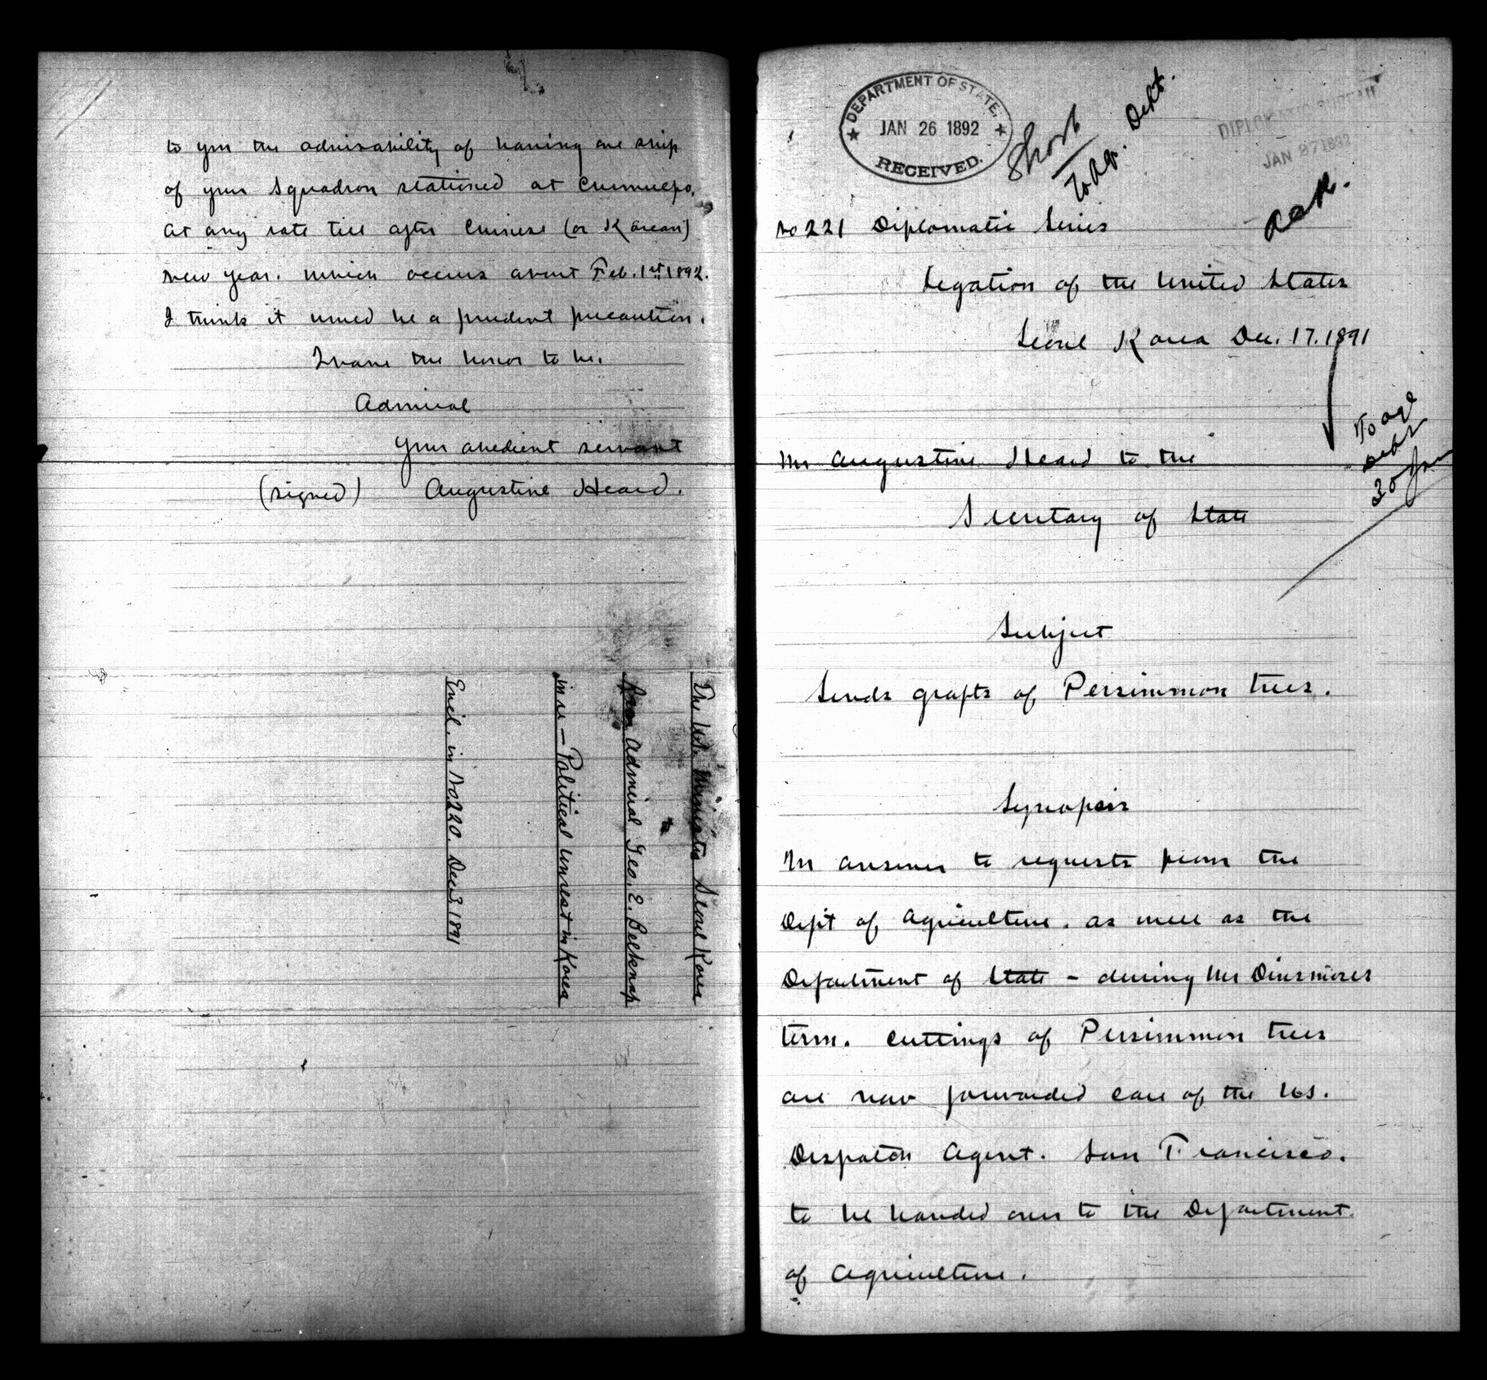 to you the advisability of having one ship
of your squadron stationed at Chemulpo,
at any rate till after Chinese (or Korean)
new year. which occurs about Feb. 1st 1892.
I think it would be a prudent precaution.
I have the honor to be.
Admiral
Your obedient servant
(signed) Augustine Heard.
The U.S. Minister Seoul Korea
to
Admiral Geo. E. Belknap
in re — Political Unrest in Korea
Encl. in No 220. Dec 3 1891
DEPARTMENT OF STATE,
JAN 26 1892
RECEIVED.
Short
To Agr. Dept.
DIPLOMATIC BUREAU
JAN 27 1892
No 221 Diplomatic Series
Legation of the United States
Seoul Korea Dec. 17. 1891
To Agl
Dept
30 Jan
Mr Augustine Heard to the
Secretary of State
Subject
Sends grafts of Persimmon trees.
Synopsis
In answer to requests from the
Dep't of Agriculture. as well as the
Department of State - during Mr Dinsmores
term. cuttings of Persimmon trees
are now forwarded care of the U.S.
Despatch Agent. San Francisco.
to be handed over to the Department
of Agriculture.